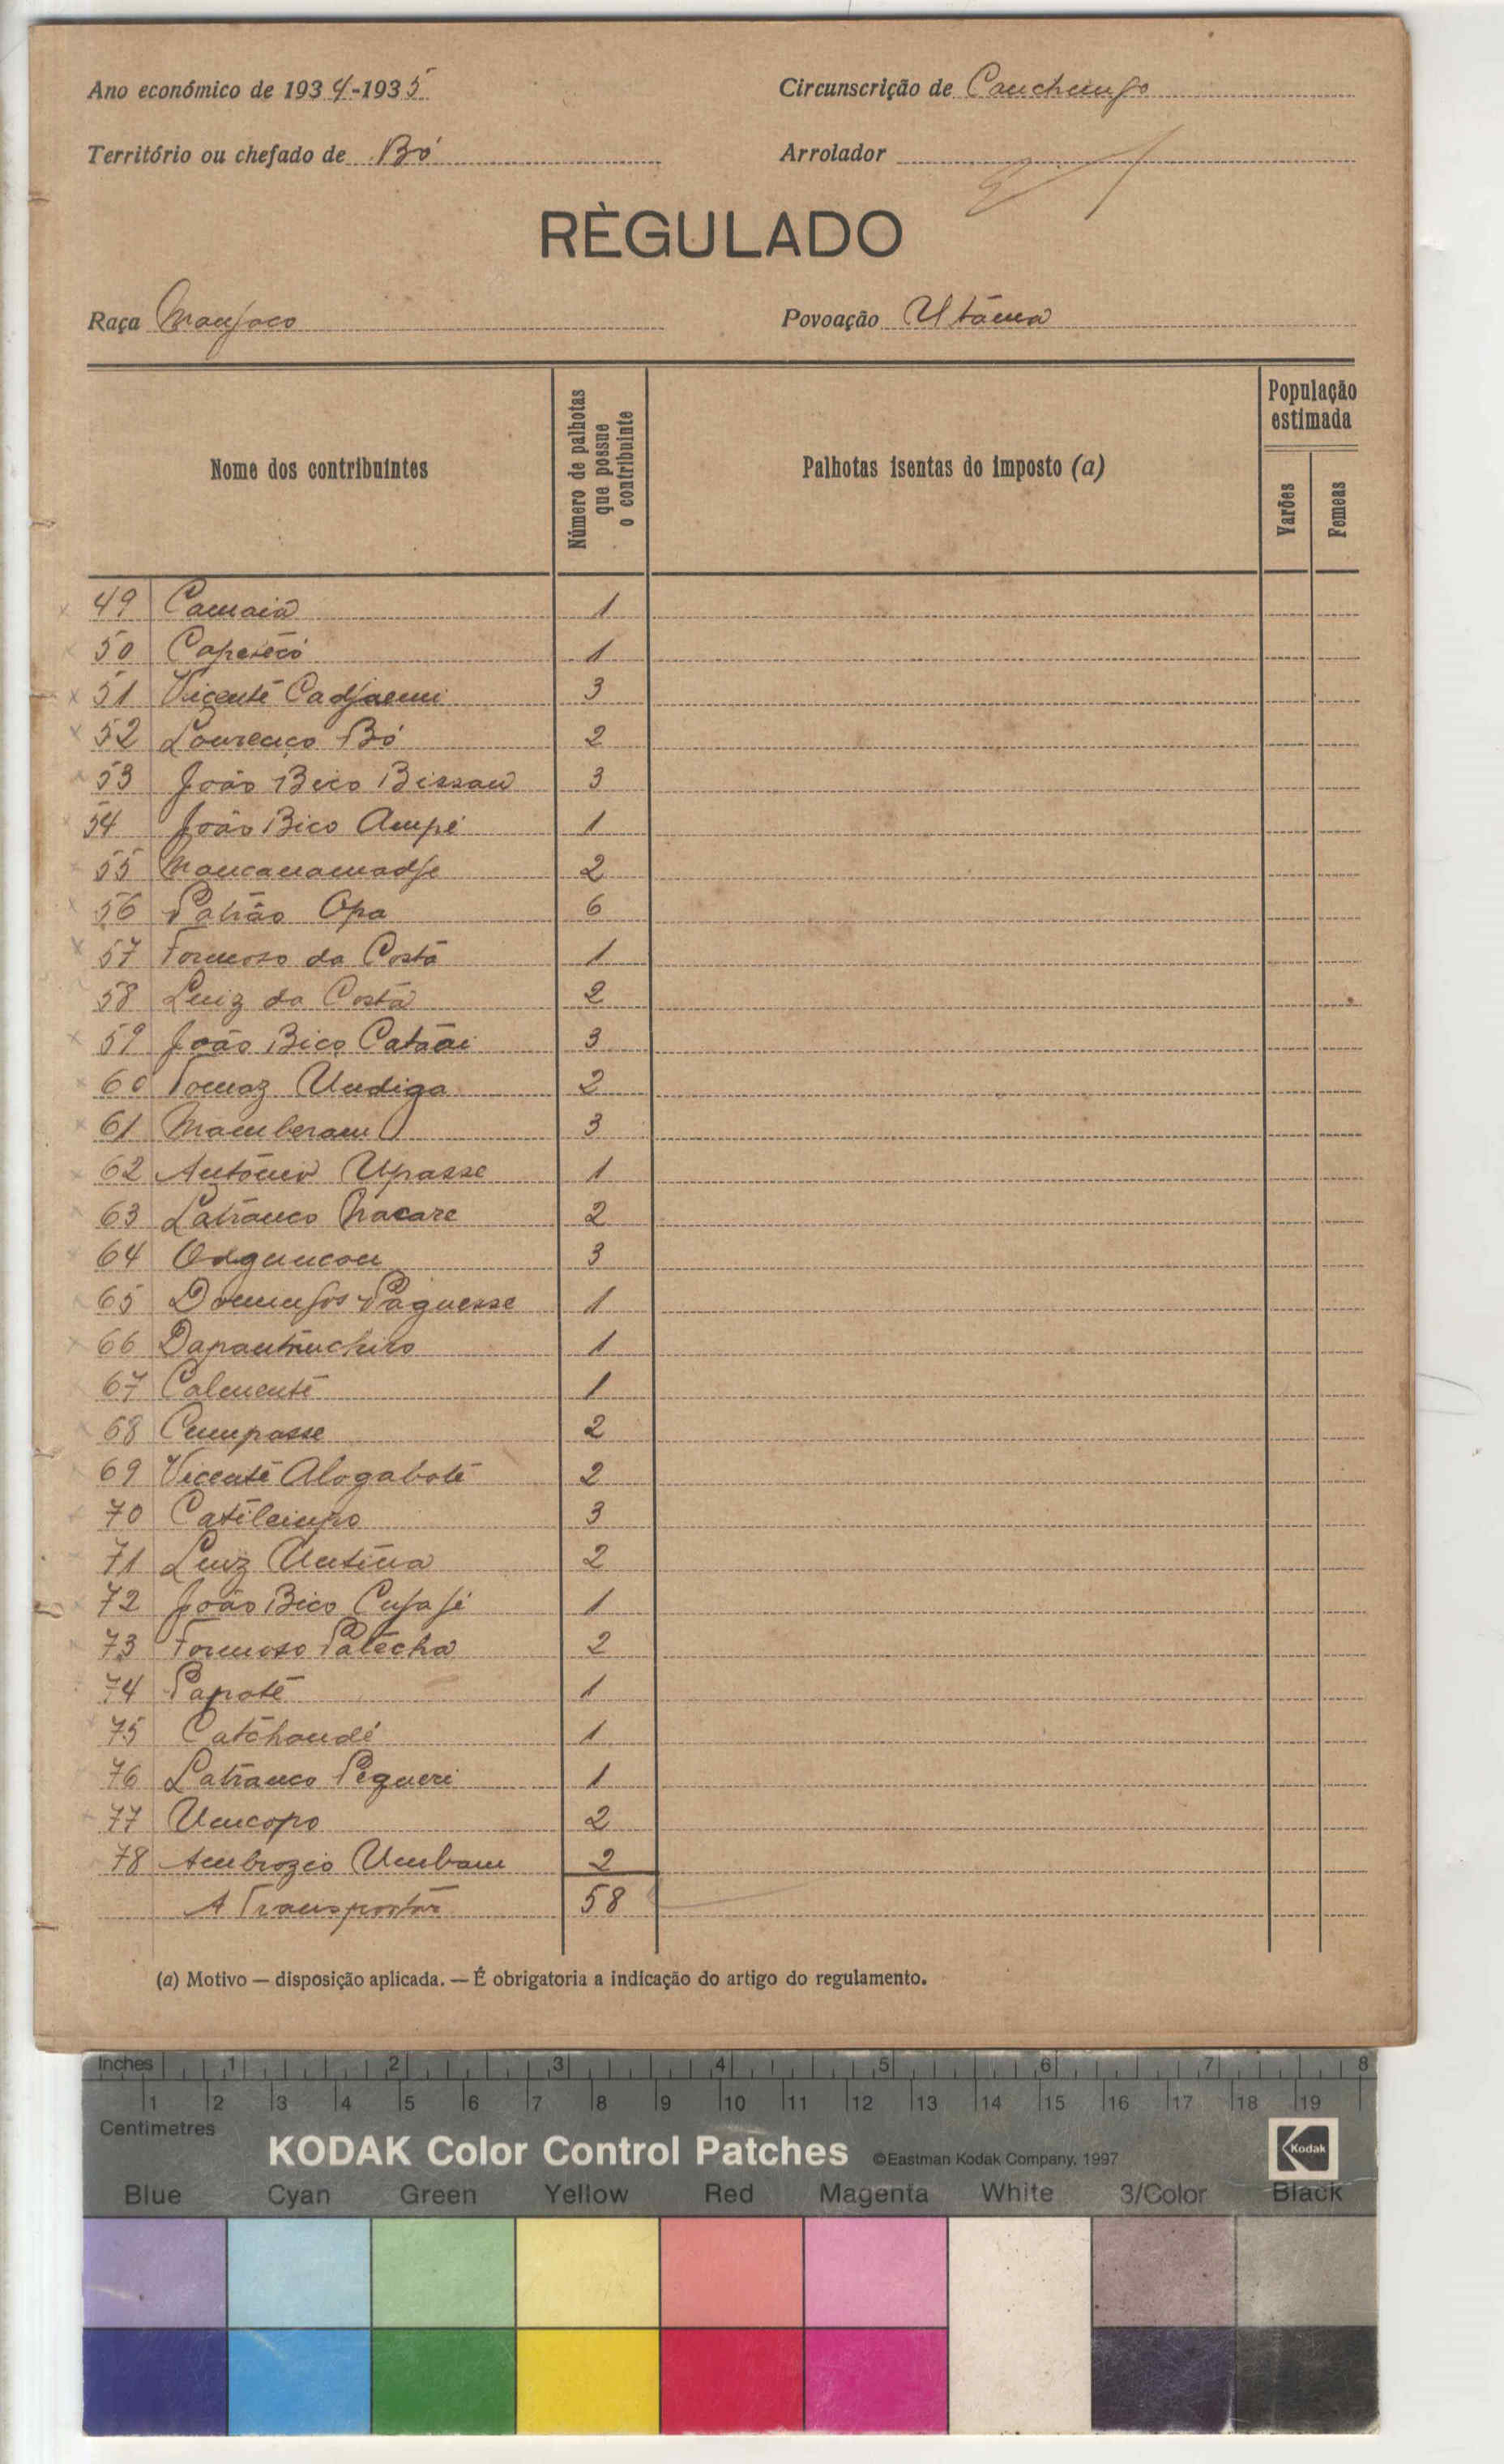 Ano económico de 1934-1935 Circunscrição de Canchungo
Território ou chefado de Bó Arrolador
RÈGULADO
Raça Manjaco Povoação Utâma
Nome dos contribuintes
Número de palhotas que possue o contribuinte
Palhotas isentas do imposto (a)
População estimada
Varões
Femeas
49 Camaiã 1
50 1
51 Vicente Cadjaemi 3
52 Lourenço Bó 2
53 João Bico Bissau 3
54 João Bico Ampé 1
55 Mancanamadje 2
56 Patrão Opa 6
57 Formoso da Costa 1
58 Luiz da Costa 2
59 João Bico Catãai 3
60 Tomaz Undiga 2
61 Mamberam 3
62 António Upasse 1
63 Latranco 2
64 3
65 Domingos Paguesse 1
66 1
67 Calmente 1
68 Cumpasse 2
69 Vicente Alogabote 2
70 3
71 Luiz Untina 2
72 João Bico Cujajé 1
73 Formoso Patecha 2
74 Papote 1
75 Catchandé 1
76 Latranco Pegueri 1
77 Uncopo 2
78 Ambrozio Umbam 2
A Transportar 58
(a) Motivo — disposição aplicada. — É obrigatoria a indicação do artigo do regulamento.
Inches 1 2 3 4 5 6 7 8
1 2 3 4 5 6 7 8 9 10 11 12 13 14 15 16 17 18 19
Centimetres
KODAK Color Control Patches ©Eastman Kodak Company, 1997 Kodak
Blue Cyan Green Yellow Red Magenta White 3/Color Black